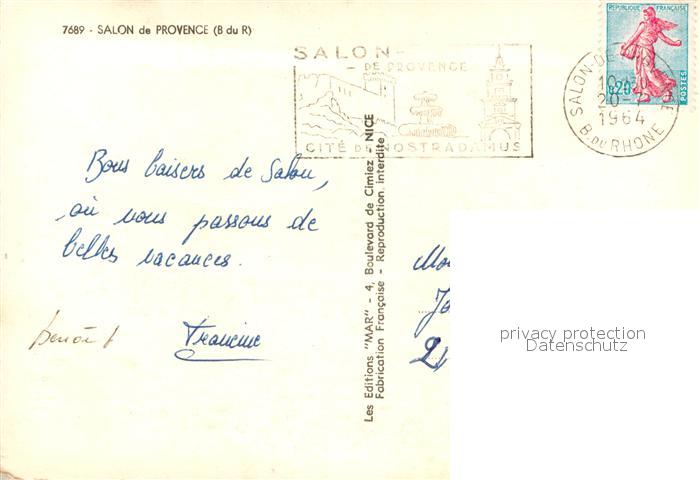 7689 - SALON de PROVENCE (B du R)
SALON
DE PROVENCE
CITÉ DE NOSTRADAMUS
REPUBLIQUE FRANÇAISE
0,20
POSTES
SALON-DE
20-7
1964
B. DU RHONE
Bons baisers de Salon,
où nous passons de
belles vacances.
benoît Francine
Les Editions "MAR" - 4, Boulevard de Cimiez - NICE
Fabrication Française - Reproduction interdite
privacy protection
Datenschutz